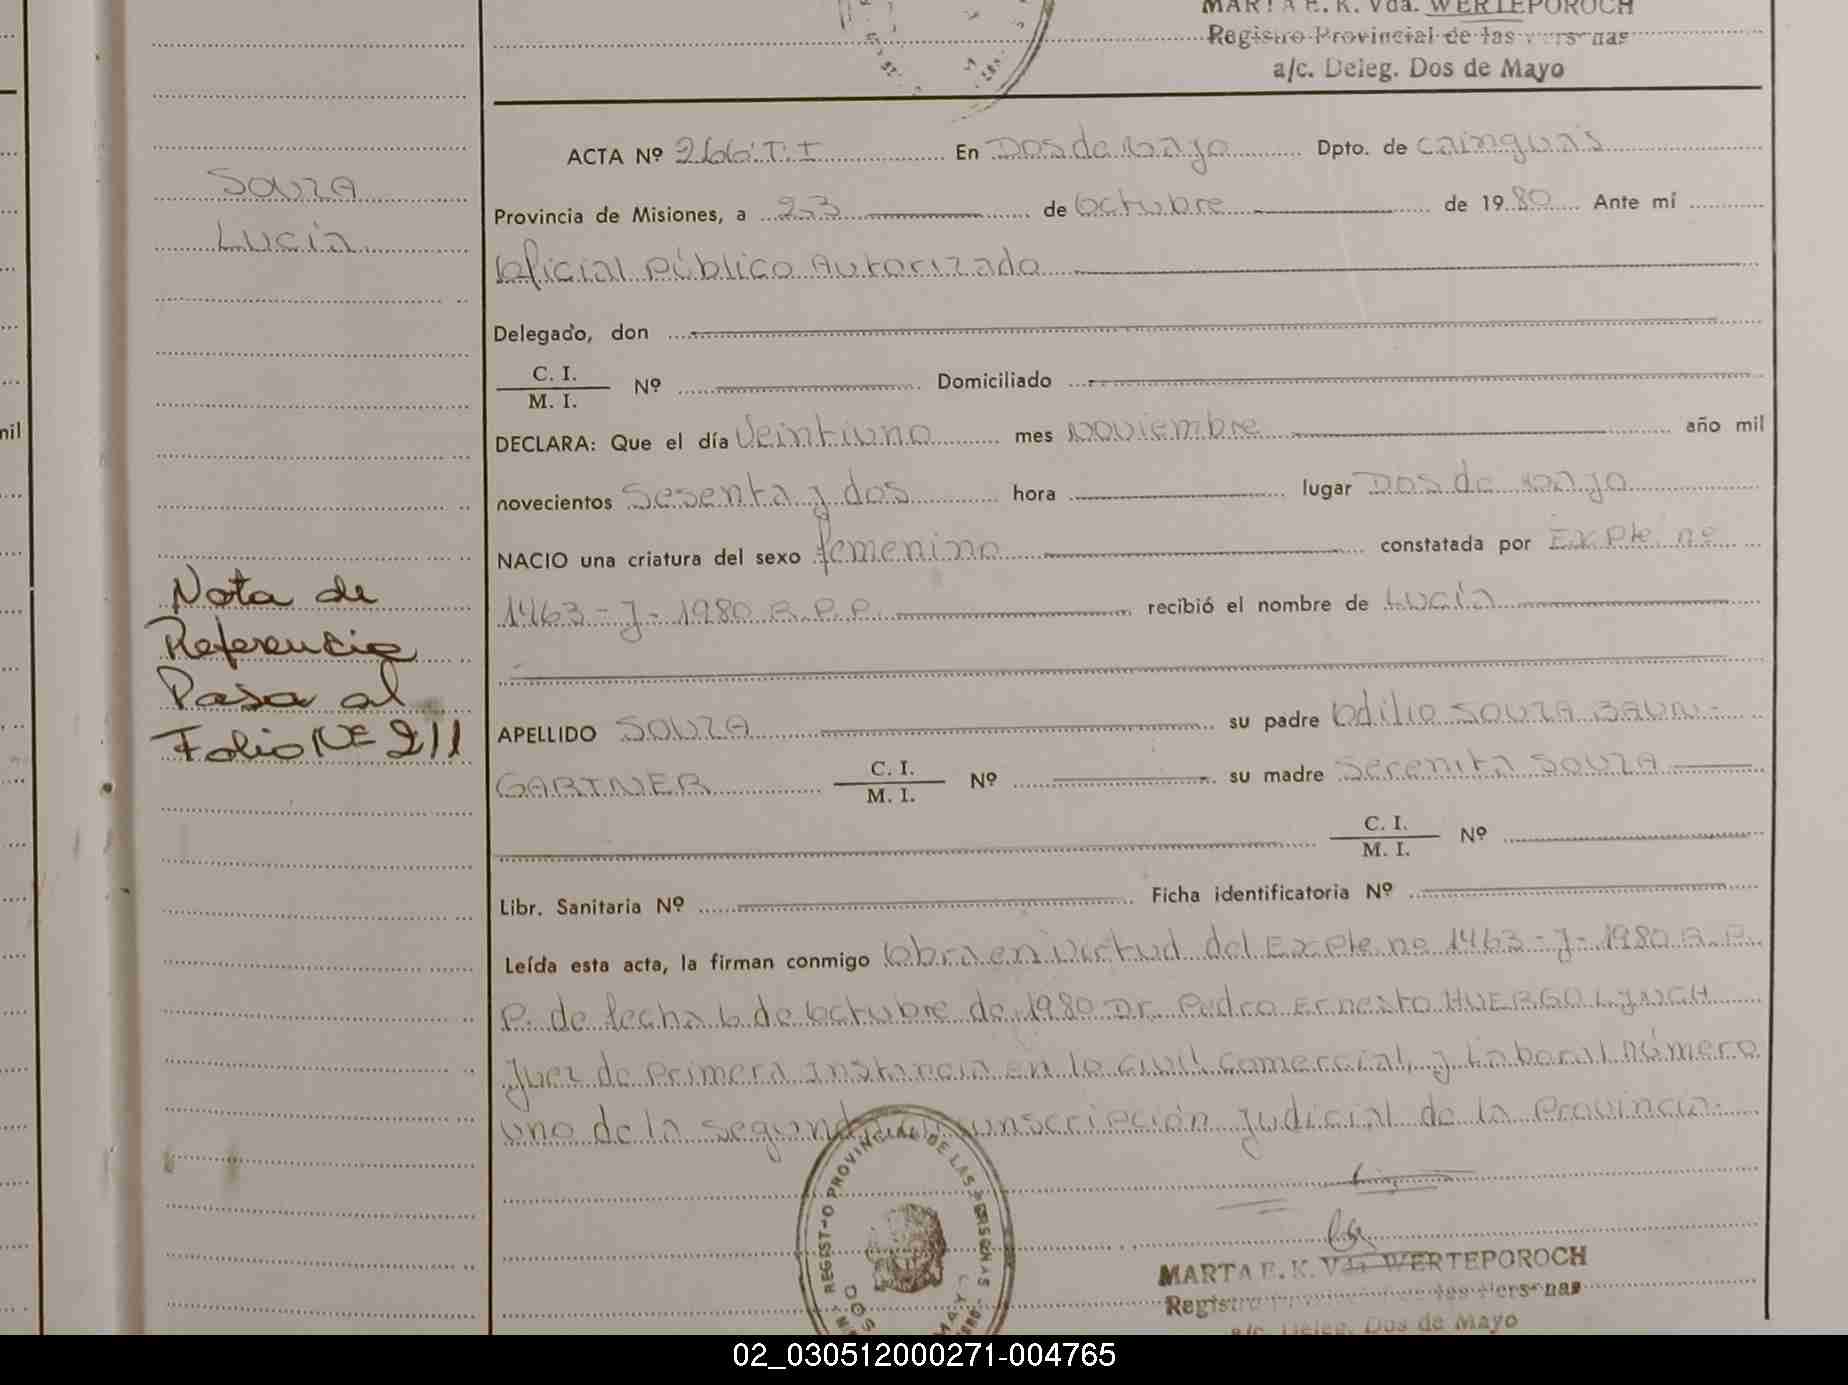 MARTA E. K. Vda. WERTEPOROCH
Registro Provincial de las Personas
a/c. Deleg. Dos de Mayo
ACTA Nº 266 T. I En Dos de Mayo Dpto. de Cainguás
SOUZA
Lucía
Provincia de Misiones, a 23 de Octubre de 1980 Ante mí
Oficial Público Autorizado
Delegado, don
C. I.
M. I. Nº Domiciliado
nil
DECLARA: Que el día Veintiuno mes Noviembre año mil
novecientos Sesenta y dos hora lugar Dos de Mayo
NACIO una criatura del sexo femenino constatada por Expte. nº
1463-J-1980 R.P.P. recibió el nombre de Lucía
Nota de
Referencia
Pasa al
Folio Nº 211
APELLIDO SOUZA su padre Odilio SOUZA BAUN-
GARTNER C. I.
M. I. Nº su madre Serenita SOUZA
C. I.
M. I. Nº
Libr. Sanitaria Nº Ficha identificatoria Nº
Leída esta acta, la firman conmigo Obra en virtud del Expte nº 1463-J-1980 R.P.
P. de fecha 6 de Octubre de 1980 Dr. Pedro Ernesto HUERGO LYNCH
Juez de Primera Instancia en lo Civil Comercial, y Laboral número
uno de la segunda Circunscripción Judicial de la Provincia.
REGISTRO PROVINCIAL DE LAS PERSONAS
MARTA E. K. Vda WERTEPOROCH
Registro Provincial de las Personas
a/c. Deleg. Dos de Mayo
02_030512000271-004765